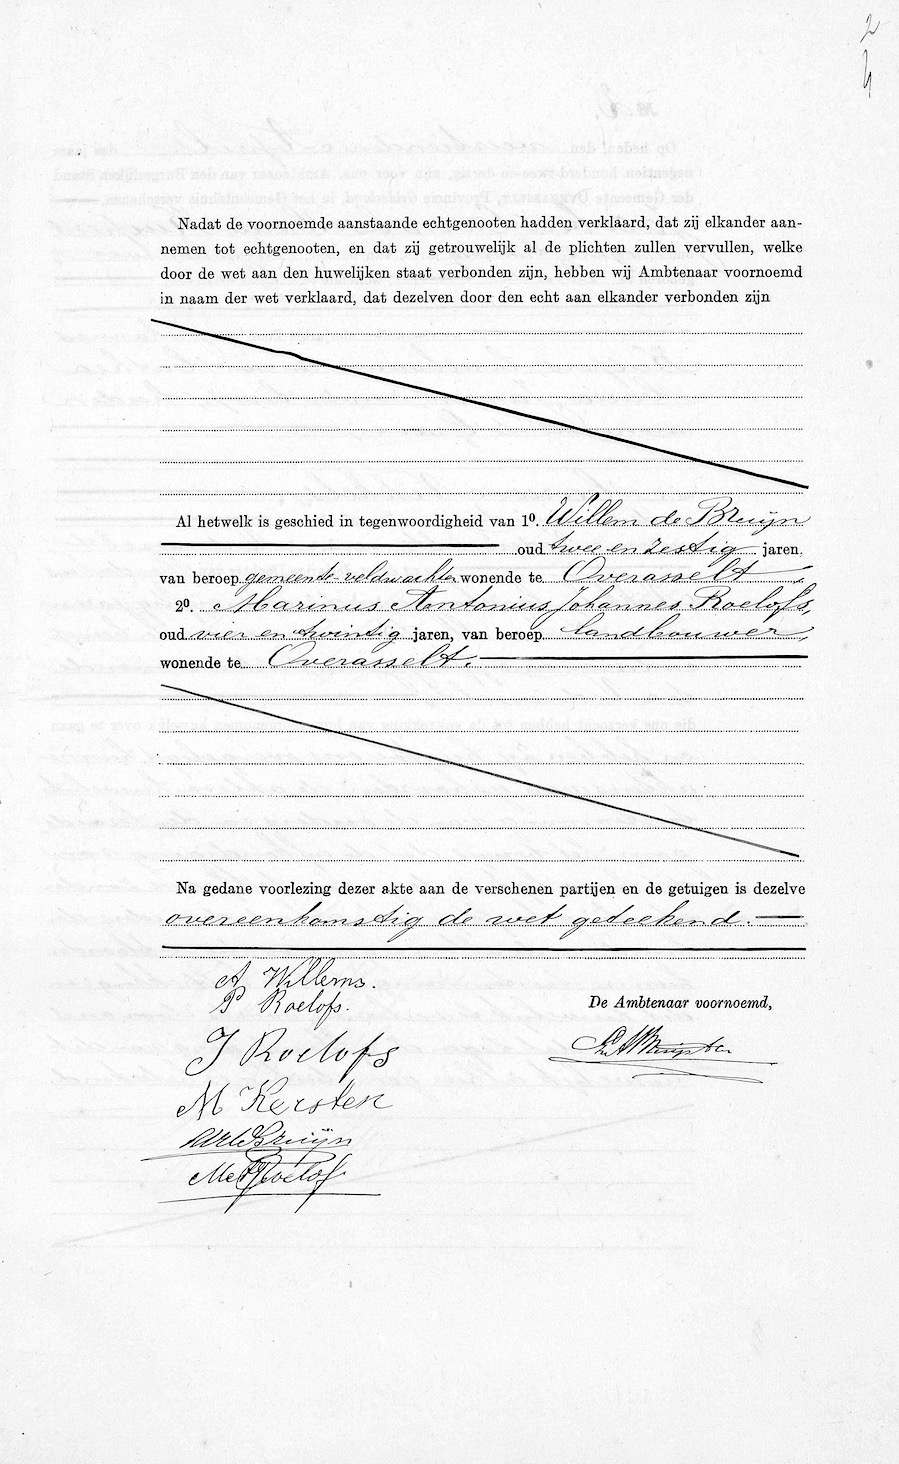 2
4
Nadat de voornoemde aanstaande echtgenooten hadden verklaard, dat zij elkander aan-
nemen tot echtgenooten, en dat zij getrouwelijk al de plichten zullen vervullen, welke
door de wet aan den huwelijken staat verbonden zijn, hebben wij Ambtenaar voornoemd
in naam der wet verklaard, dat dezelven door den echt aan elkander verbonden zijn
Al hetwelk is geschied in tegenwoordigheid van 1⁰. Willem de Bruijn
oud twee en zestig jaren,
van beroep gemeente-veldwachter wonende te Overasselt,
2⁰. Marinus Antonius Johannes Roelofs,
oud vier en twintig jaren, van beroep landbouwer,
wonende te Overasselt.
Na gedane voorlezing dezer akte aan de verschenen partijen en de getuigen is dezelve
overeenkomstig de wet geteekend.
A Willems.
P Roelofs.
De Ambtenaar voornoemd,
J Roelofs
M Kersten
de Bruijn
Roelofs